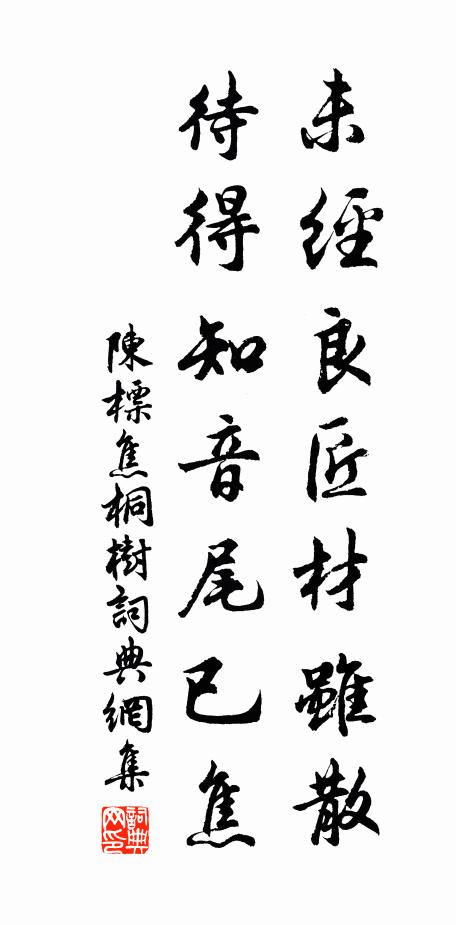 未經良匠材雖散
待得知音尾已焦
陳標焦桐樹詞典網集
詞典网印